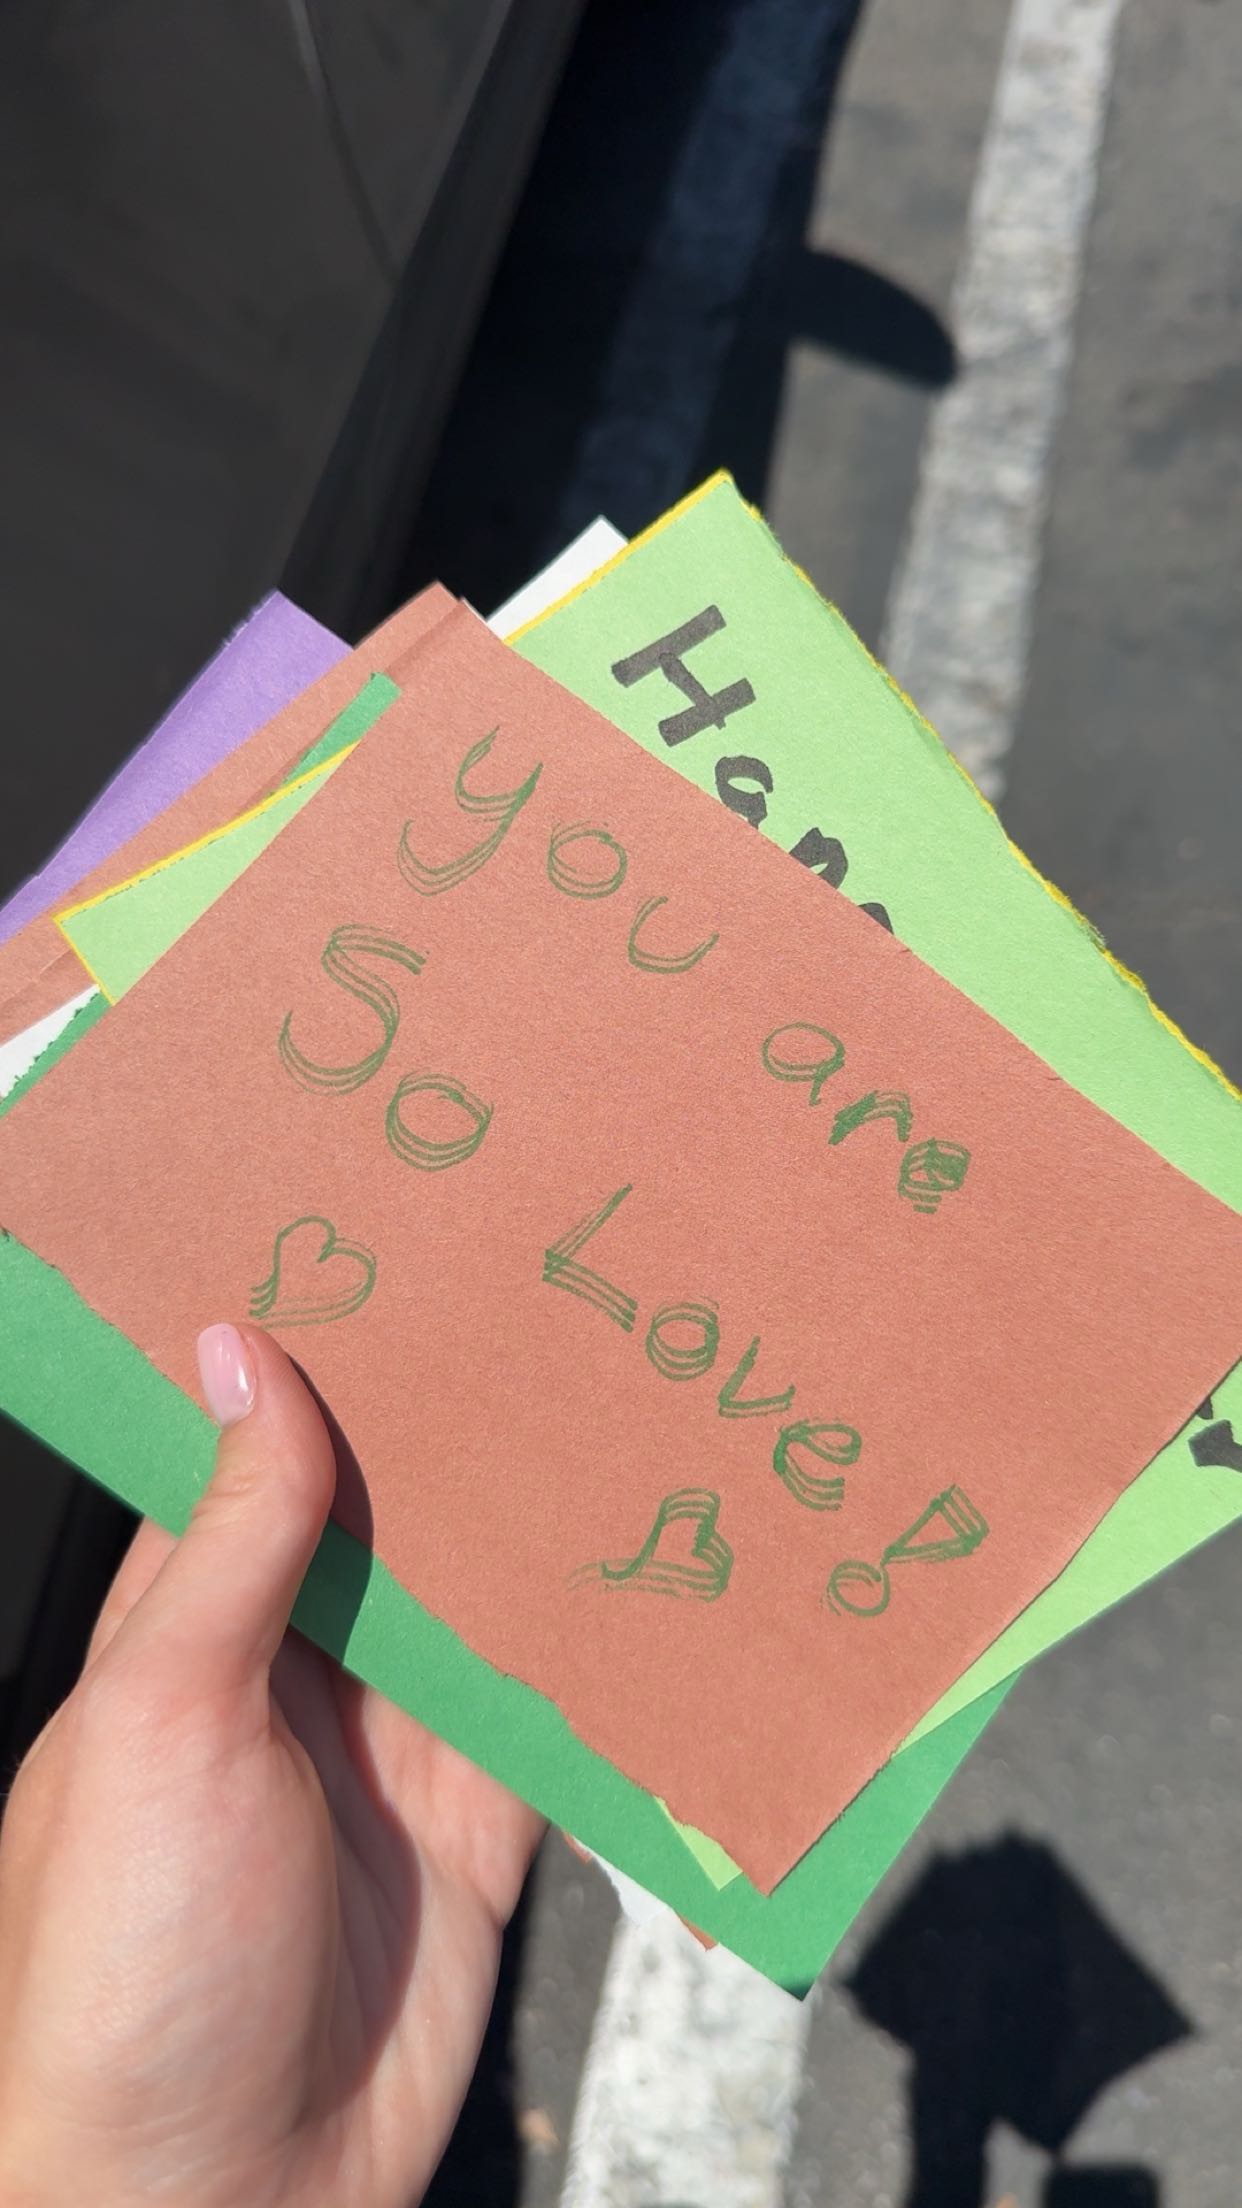 you are
so Love!